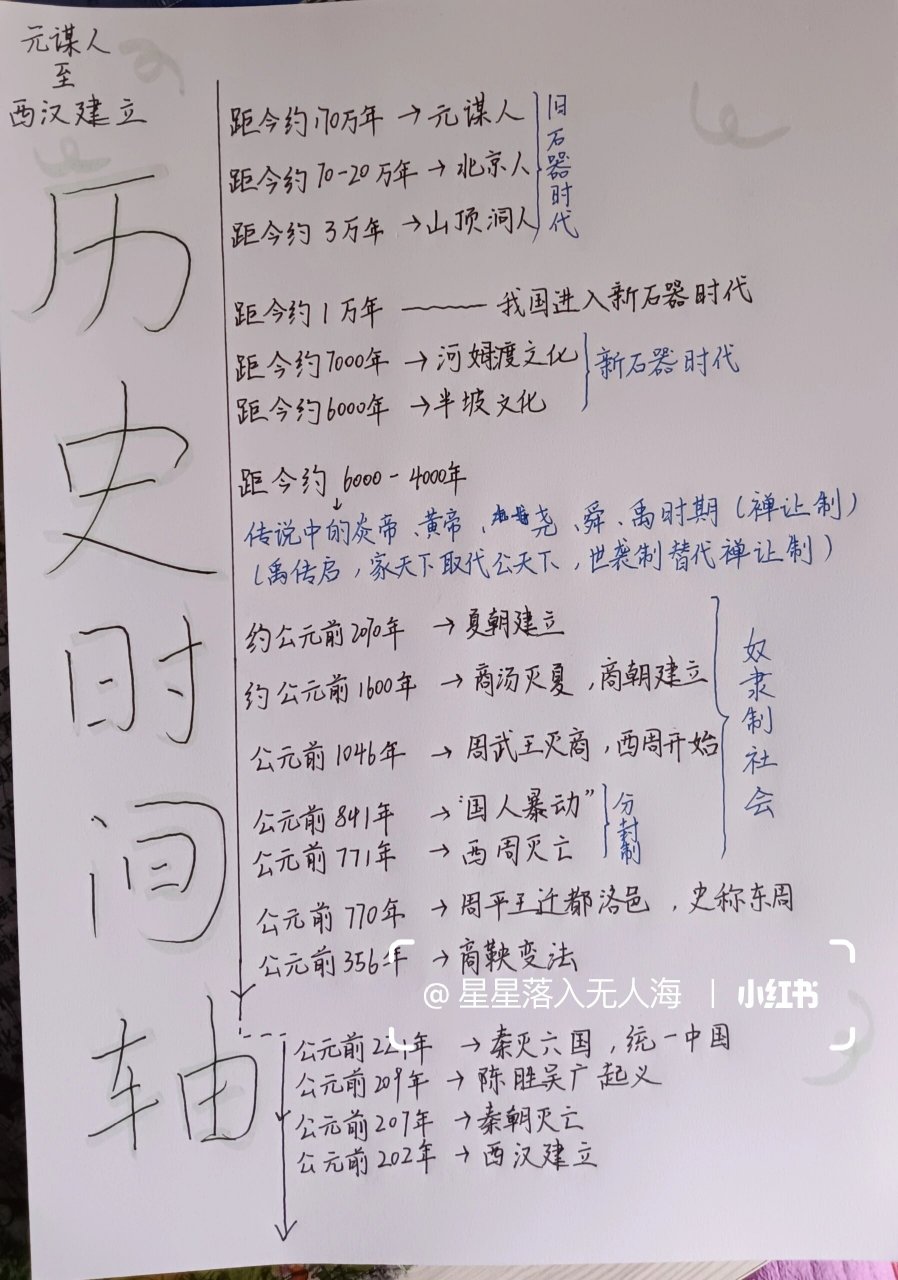 元谋人
至
西汉建立
历史时间轴
距今约170万年 → 元谋人
距今约 70-20万年 → 北京人
距今约 3万年 → 山顶洞人
旧石器时代
距今约1万年 —— 我国进入新石器时代
距今约7000年 → 河姆渡文化
距今约6000年 → 半坡文化
新石器时代
距今约 6000-4000年
↓
传说中的炎帝、黄帝、尧、舜、禹时期(禅让制)
(禹传启,家天下取代公天下,世袭制替代禅让制)
约公元前2070年 → 夏朝建立
约公元前1600年 → 商汤灭夏,商朝建立
公元前1046年 → 周武王灭商,西周开始
公元前841年 → “国人暴动”
公元前771年 → 西周灭亡
分封制
奴隶制社会
公元前770年 → 周平王迁都洛邑,史称东周
公元前356年 → 商鞅变法
@星星落入无人海 | 小红书
公元前221年 → 秦灭六国,统一中国
公元前209年 → 陈胜吴广起义
公元前207年 → 秦朝灭亡
公元前202年 → 西汉建立